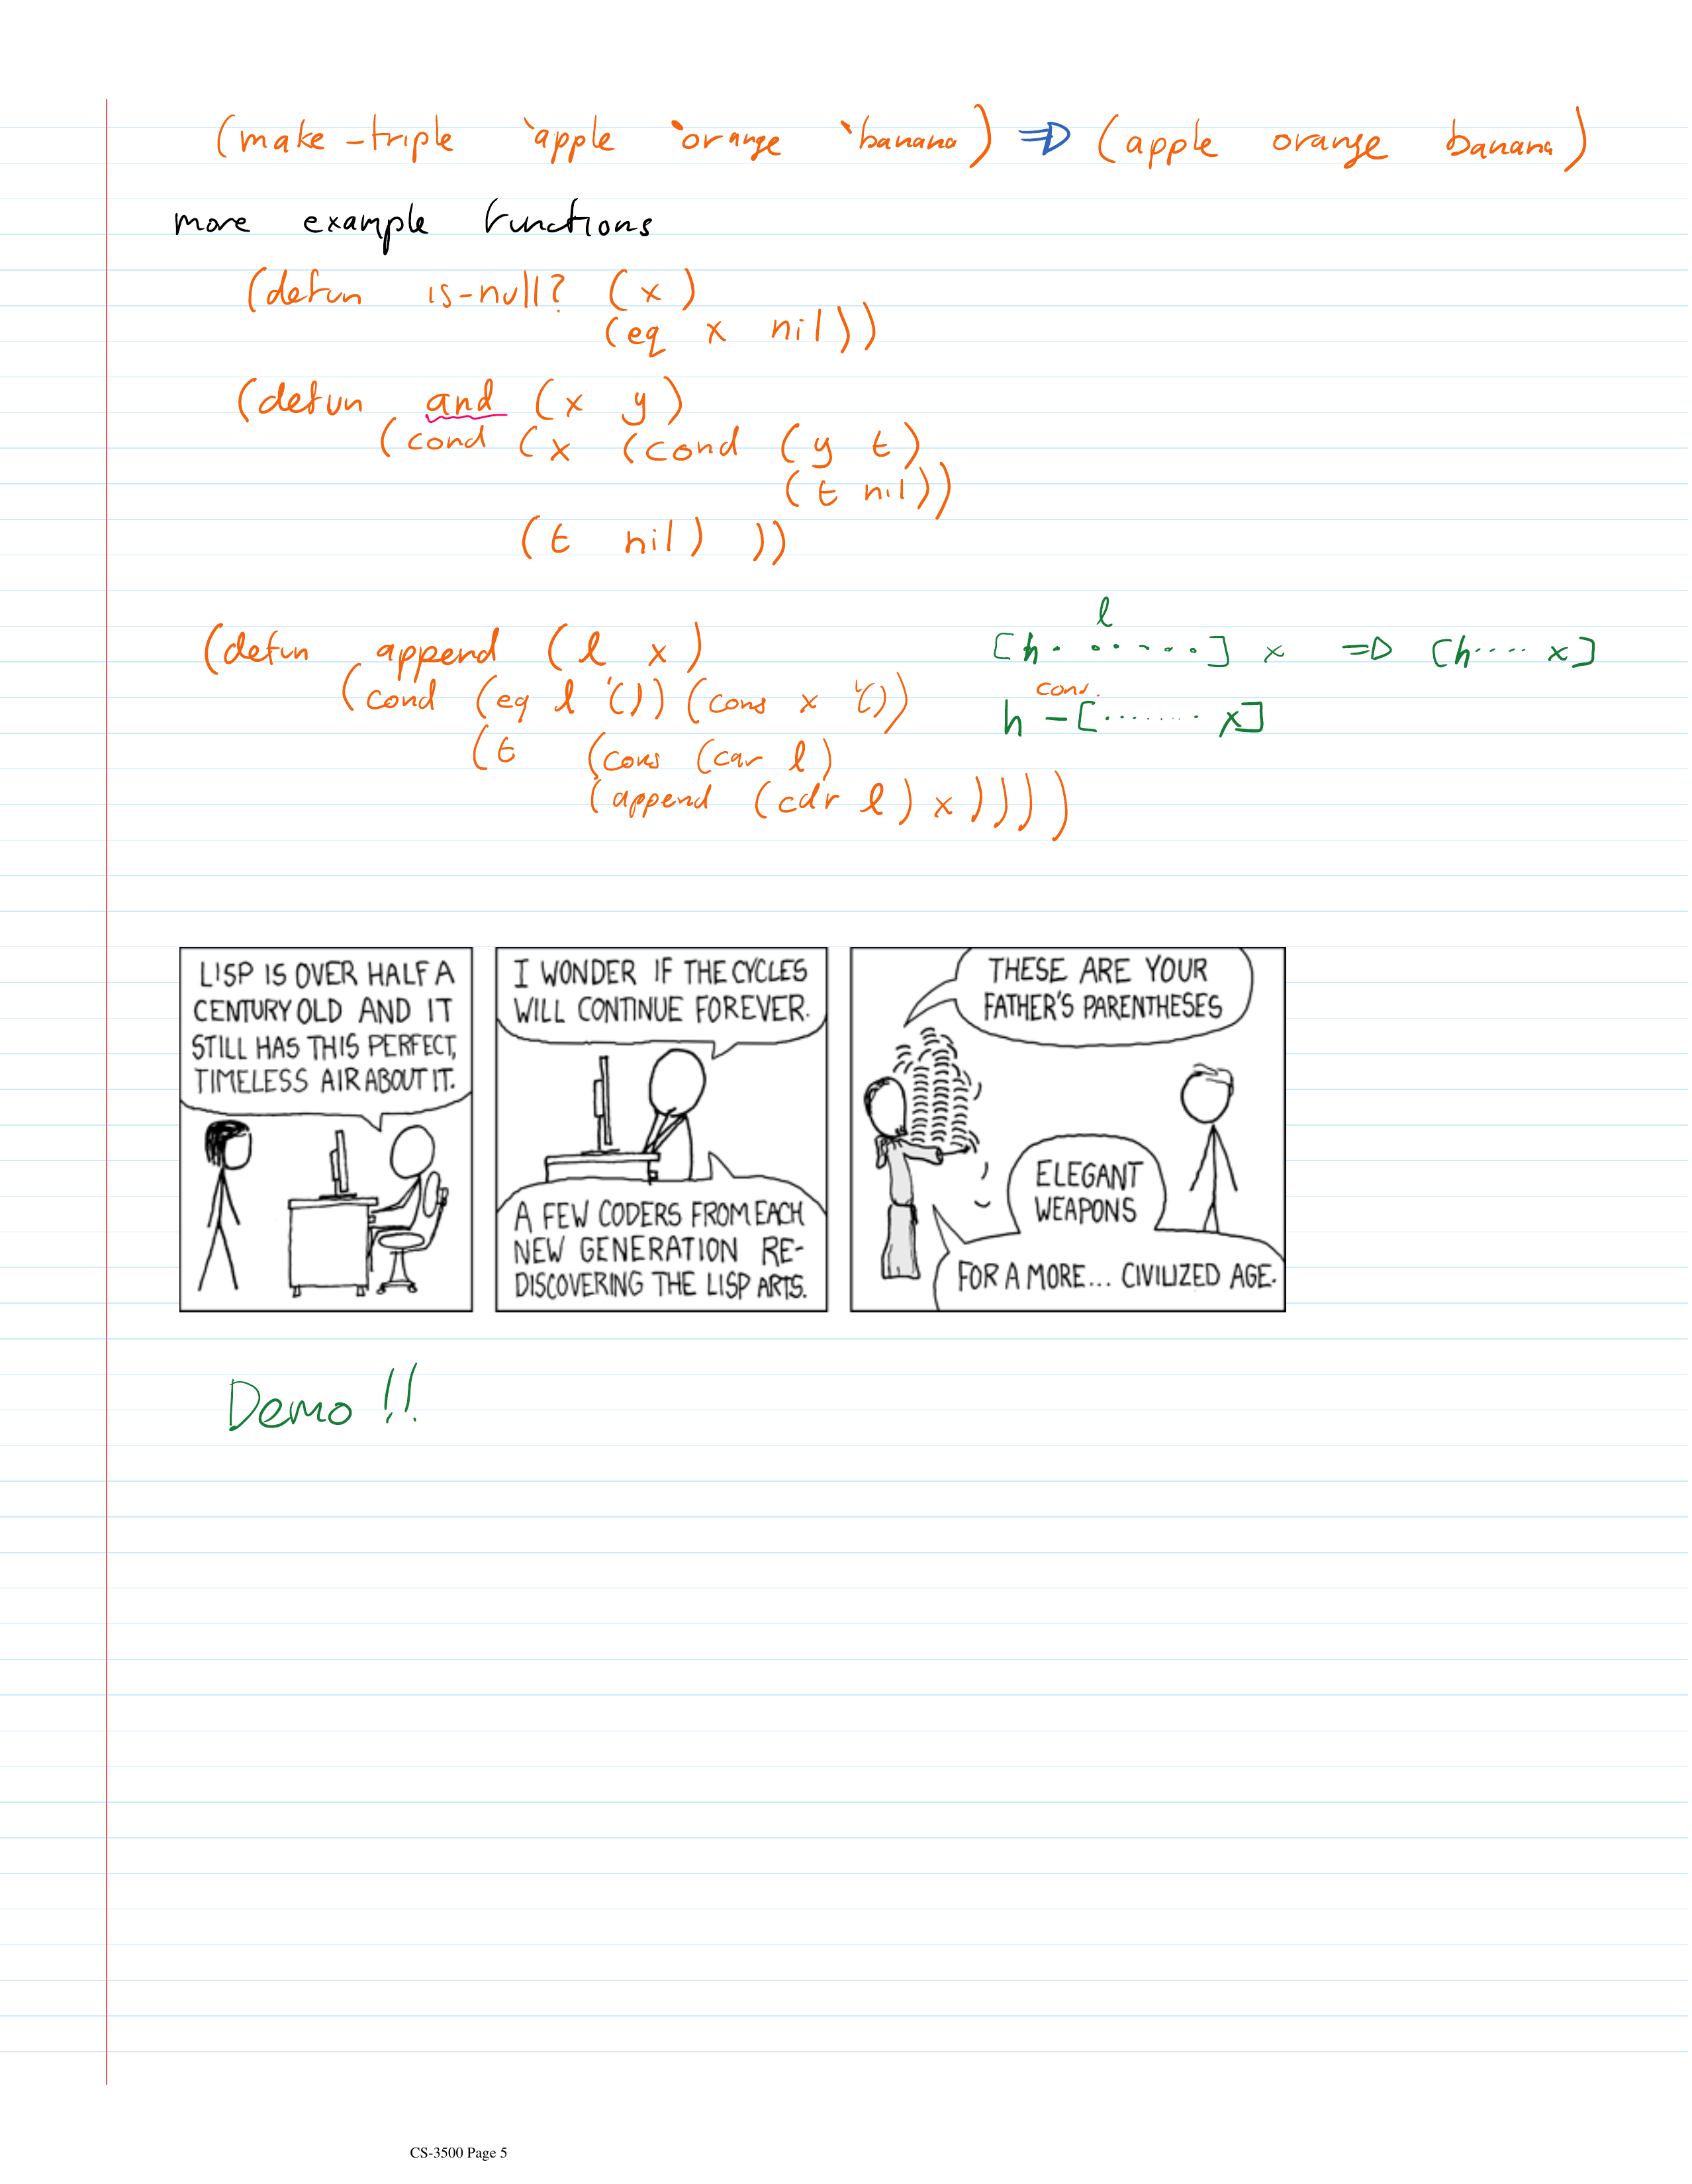 (make-triple 'apple 'orange 'banana) ⇒ (apple orange banana)
more example functions
(defun is-null? (x)
(eq x nil))
(defun and (x y)
(cond (x (cond (y t)
(t nil))
(t nil) ))
(defun append (l x)
(cond (eq l '()) (cons x '())
(t (cons (car l)
(append (cdr l) x)))))
l
[h. ......] x ⇒ [h.... x]
cons.
h -[........ x]
LISP IS OVER HALF A
CENTURY OLD AND IT
STILL HAS THIS PERFECT,
TIMELESS AIR ABOUT IT.
I WONDER IF THE CYCLES
WILL CONTINUE FOREVER.
A FEW CODERS FROM EACH
NEW GENERATION RE-
DISCOVERING THE LISP ARTS.
THESE ARE YOUR
FATHER'S PARENTHESES
ELEGANT
WEAPONS
FOR A MORE... CIVILIZED AGE.
Demo!!
CS-3500 Page 5